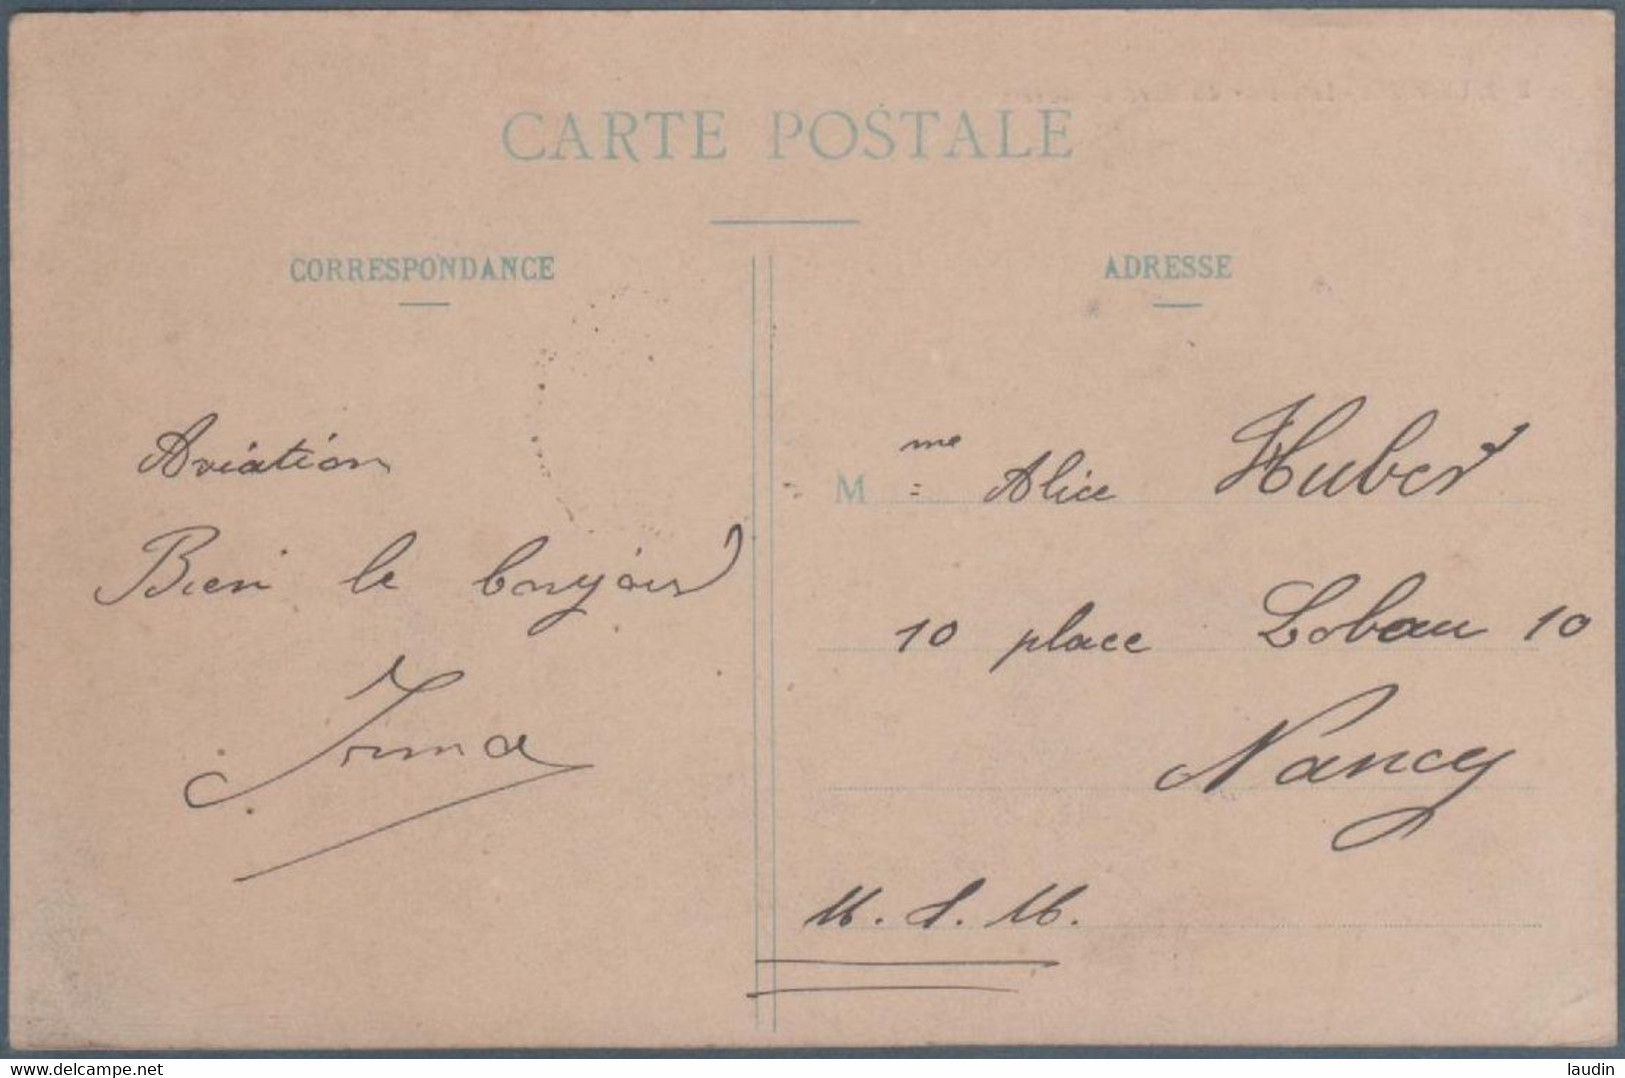 CARTE POSTALE
CORRESPONDANCE
ADRESSE
Aviation
Bien le bonjour
Irma
M me Alice Huber
10 place Lobau 10
Nancy
M. &. M.
delcampe.net
laudin